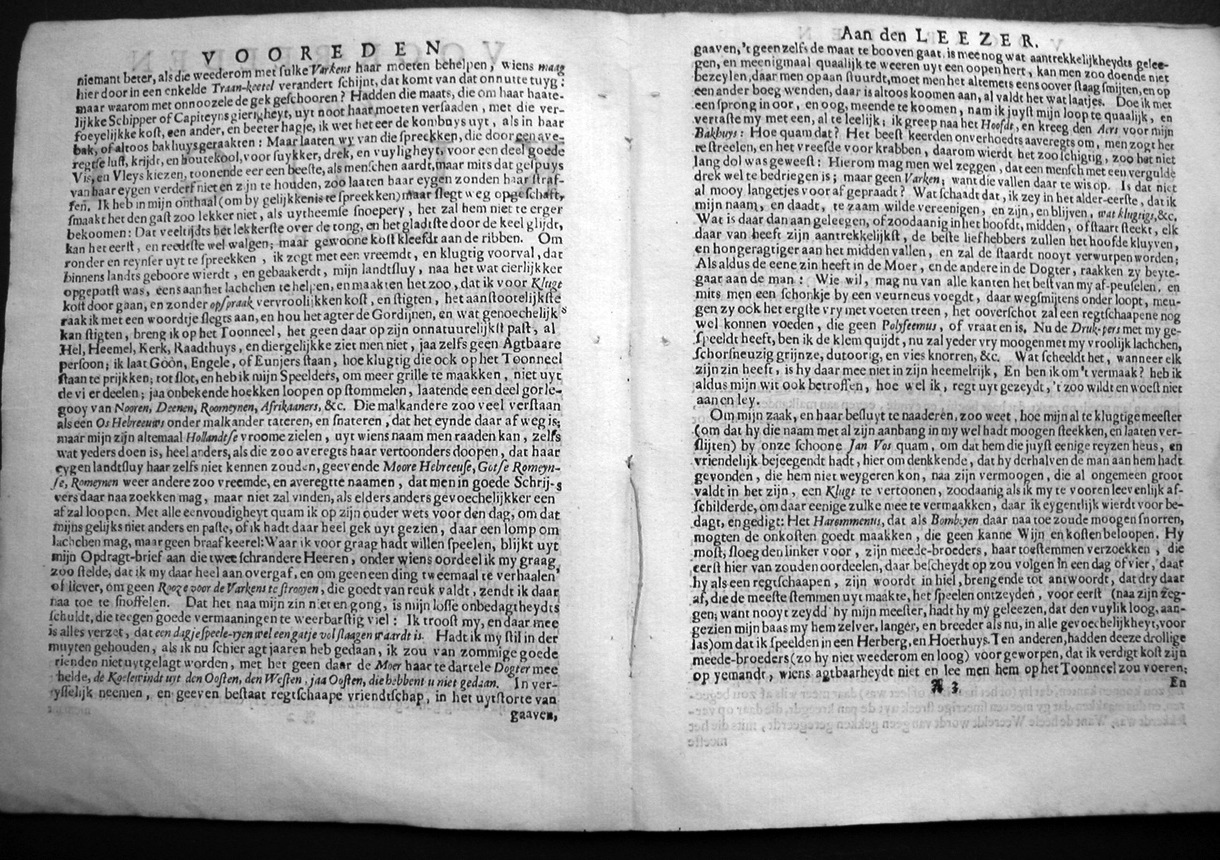 VOOREDEN
niemant beter, als die weederom met sulke Varkens haar moeten behelpen, wiens maag
hier door in een enkelde Traan-keetel verandert schijnt, dat komt van dat onnutte tuyg:
maar waarom met onnoozele de gek geschooren? Hadden die maats, die om haar haate-
lijkke Schipper of Capiteyns gierigheyt, uyt noot haar moeten versaaden, met die ver-
foeyelijkke kost, een ander, en beeter hagje, ik wet het eer de kombuys uyt, als in haar
bak, of altoos bakhuys geraakten: Maar laaten wy van die spreekken, die door genave-
regtse lust, krijdt, en houtekool, voor suykker, drek, en vuyligheyt, voor een deel goede
Vis, en Vleys kiezen, toonende eer een beeste, als menschen aardt, maar mits dat gespuys
van haar eygen verderf niet en zijn te houden, zoo laaten haar eygen zonden haar straf-
fen. Ik heb in mijn onthaal (om by gelijkkenis te spreekken) maar slegt weg opgeschaft,
smaakt het den gast zoo lekker niet, als uytheemse snoepery, het zal hem niet te erger
bekoomen: Dat veeltijdts het lekkerste over de tong, en het gladtste door de keel glijdt,
kan het eerst, en reedtste wel walgen; maar gewoone kost kleefdt aan de ribben. Om
ronder en reynser uyt te spreekken, ik zegt met een vreemdt, en klugtig voorval, dat
binnens landts geboore wierdt, en gebaakerdt, mijn landtsluy, naa het wat cierlijkker
opgepast was, eens aan het lachchen te helpen, en maakten het zoo, dat ik voor Klugt
kost door gaan, en zonder opspraak vervroolijkken kost, en stigten, het aanstootelijkste
raak ik met een woordtje slegts aan, en hou het agter de Gordijnen, en wat genoechelijk's
kan stigten, breng ik op het Toonneel, het geen daar op zijn onnatuurelijkst past, al
Hel, Heemel, Kerk, Raadthuys, en diergelijkke ziet men niet, jaa zelfs geen Agtbaare
persoon; ik laat Goôn, Engele, of Eunjers staan, hoe klugtig die ock op het Toonneel
staan te prijkken; tot slot, en heb ik mijn Speelders, om meer grille te maakken, niet uyt
de vi er deelen; jaa onbekende hoekken loopen op stommelen, laatende een deel gorle-
gooy van Nooren, Deenen, Roomeynen, Afrikaaners, &c. Die malkandere zoo veel verstaan
als een Os Hebreeuws onder malkander tateren, en snateren, dat het eynde daar af weg is;
maar mijn zijn altemaal Hollandtse vroome zielen, uyt wiens naam men raaden kan, zelfs
wat yeders doen is, heel anders, als die zoo averegts haar vertoonders doopen, dat haar
eygen landtsluy haar zelfs niet kennen zouden, geevende Moore Hebreeuse, Gotse Romeyn-
se, Romeynen weer andere zoo vreemde, en averegtte naamen, dat men in goede Schrij-
vers daar naa zoekken mag, maar niet zal vinden, als elders anders gevoechelijkker een
af zal loopen. Met alle eenvoudigheyt quam ik op zijn ouder wets voor den dag, om dat
mijns gelijks niet anders en paste, of ik hadt daar heel gek uyt gezien, daar een lomp om
lachchen mag, maar geen braaf keerel: Waar ik voor graag hadt willen speelen, blijkt uyt
mijn Opdragt-brief aan die twee schrandere Heeren, onder wiens oordeel ik my graag
zoo stelde, dat ik my daar heel aan overgaf, en om geen een ding tweemaal te verhaalen
of liever, om geen Rooze voor de Varkens te stroojen, die goedt van reuk valdt, zendt ik daar
naa toe te snoffelen. Dat het naa mijn zin niet en gong, is mijn losse onbedagtheydts
schuldt, die teegen goede vermaaningen te weerbarstig viel: Ik troost my, en daar mee
is alles verzet, dat een dagje speele-ryen wel een gatje vol slaagen waardt is. Hadt ik my stil in der
muyten gehouden, als ik nu schier agt jaaren heb gedaan, ik zou van zommige goede
vrienden niet uytgelagt worden, met het geen daar de Moer haar te dartele Dogter mee
helde, de Koelewindt uyt den Oosten, den Westen, jaa Oosten, die hebbent u niet gedaan. In ver-
ystelijk neemen, en geeven bestaat regtschaape vriendtschap, in het uytstorte van
gaaven,
Aan den LEEZER.
gaaven, 't geen zelfs de maat te booven gaat. is mee nog wat aantrekkelijkheydts gelee-
gen, en meenigmaal quaalijk te weeren uyt een oopen hert, kan men zoo doende niet
bezeylen, daar men op aan stuurdt, moet men het altemets eens oover staag smijten, en op
een ander boeg wenden, daar is altoos koomen aan, al valdt het wat laatjes. Doe ik met
een sprong in oor, en oog, meende te koomen, nam ik juyst mijn loop te quaalijk, en
vertaste my met een, al te leelijk; ik greep naa het Hoofdt, en kreeg den Aers voor mijn
Bakhuys: Hoe quam dat? Het beest keerden onverhoedts aaveregts om, men zogt het
te streelen, en het vreesde voor krabben, daarom wierdt het zoo schigtig, zoo het niet
lang dol was geweest: Hierom mag men wel zeggen, dat een mensch met een vergulde
drek wel te bedriegen is; maar geen Varken; want die vallen daar te wis op. Is dat niet
al mooy langetjes voor af gepraadt? Wat schaadt dat, ik zey in het alder-eerste, dat ik
mijn naam, en daadt, te zaam wilde vereenigen, en zijn, en blijven, wat klugtigs, &c.
Wat is daar dan aan geleegen, of zoodanig in het hoofdt, midden, of staart steekt, elk
daar van heeft zijn aantrekkelijkst, de beste liefhebbers zullen het hoofde kluyven,
en hongeragtiger aan het midden vallen, en zal de staardt nooyt verwurpen worden;
Als aldus de eene zin heeft in de Moer, en de andere in de Dogter, raakken zy beyte-
gaar aan de man: Wie wil, mag nu van alle kanten het best van my af-peuselen. en
mits men een schonkje by een veurneus voegdt, daar wegsmijtens onder loopt, meu-
gen zy ook het ergste vry met voeten treen, het ooverschot zal een regtschaapene nog
wel konnen voeden, die geen Polyfeemus, of vraat en is. Nu de Druk-pers met my ge-
speeldt heeft, ben ik de klem quijdt, nu zal yeder vry moogen met my vroolijk lachchen,
schorsneuzig grijnze, dutoorig, en vies knorren, &c. Wat scheeldt het, wanneer elk
zijn zin heeft, is hy daar mee niet in zijn heemelrijk, En ben ik om't vermaak? heb ik
aldus mijn wit ook betroffen, hoe wel ik, regt uyt gezeydt, 't zoo wildt en woest niet
aan en ley.
Om mijn zaak, en haar besluyt te naaderen, zoo weet, hoe mijn al te klugtige meester
(om dat hy die naam met al zijn aanbang in my wel hadt moogen steekken, en laaten ver-
slijten) by onze schoone Jan Vos quam, om dat hem die juyst eenige reyzen heus, en
vriendelijk bejeegendt hadt, hier om denkkende, dat hy derhalven de man aan hem hadt
gevonden, die hem niet weygeren kon, naa zijn vermoogen, die al ongemeen groot
valdt in het zijn, een Klugt te vertoonen, zoodaanig als ik my te vooren leevenlijk af-
schilderde, om daar eenige zulke mee te vermaakken, daar ik eygentlijk wierdt voor be-
dagt, en gedigt: Het Harommenus, dat als Bombyen daar naa toe zoude moogen snorren,
mogten de onkosten goedt maakken, die geen kanne Wijn en kosten beloopen. Hy
most, sloeg den linker voor, zijn meede-broeders, haar toestemmen verzoekken, die
eerst hier van zouden oordeelen, daar bescheydt op zou volgen in een dag of vier, daar
hy als een regtschaapen, zijn woordt in hiel, brengende tot antwoordt, dat dry daar
af, die de meeste stemmen uyt maakte, het speelen ontzeyden, voor eerst (naa zijn zeg-
gen; want nooyt zeydd' hy mijn meester, hadt hy my geleezen, dat den vuylik loog, aan-
gezien mijn baas my hem zelver, langer, en breeder als nu, in alle gevoechelijkheyt, voor
las) om dat ik speelden in een Herberg, en Hoerhuys. Ten anderen, hadden deeze drollige
meede-broeders (zo hy niet weederom en loog) voor geworpen, dat ik verdigt kost zijn
op yemandt, wiens agtbaarheydt niet en lee men hem op het Toonneel zou voeren;
A 3
En